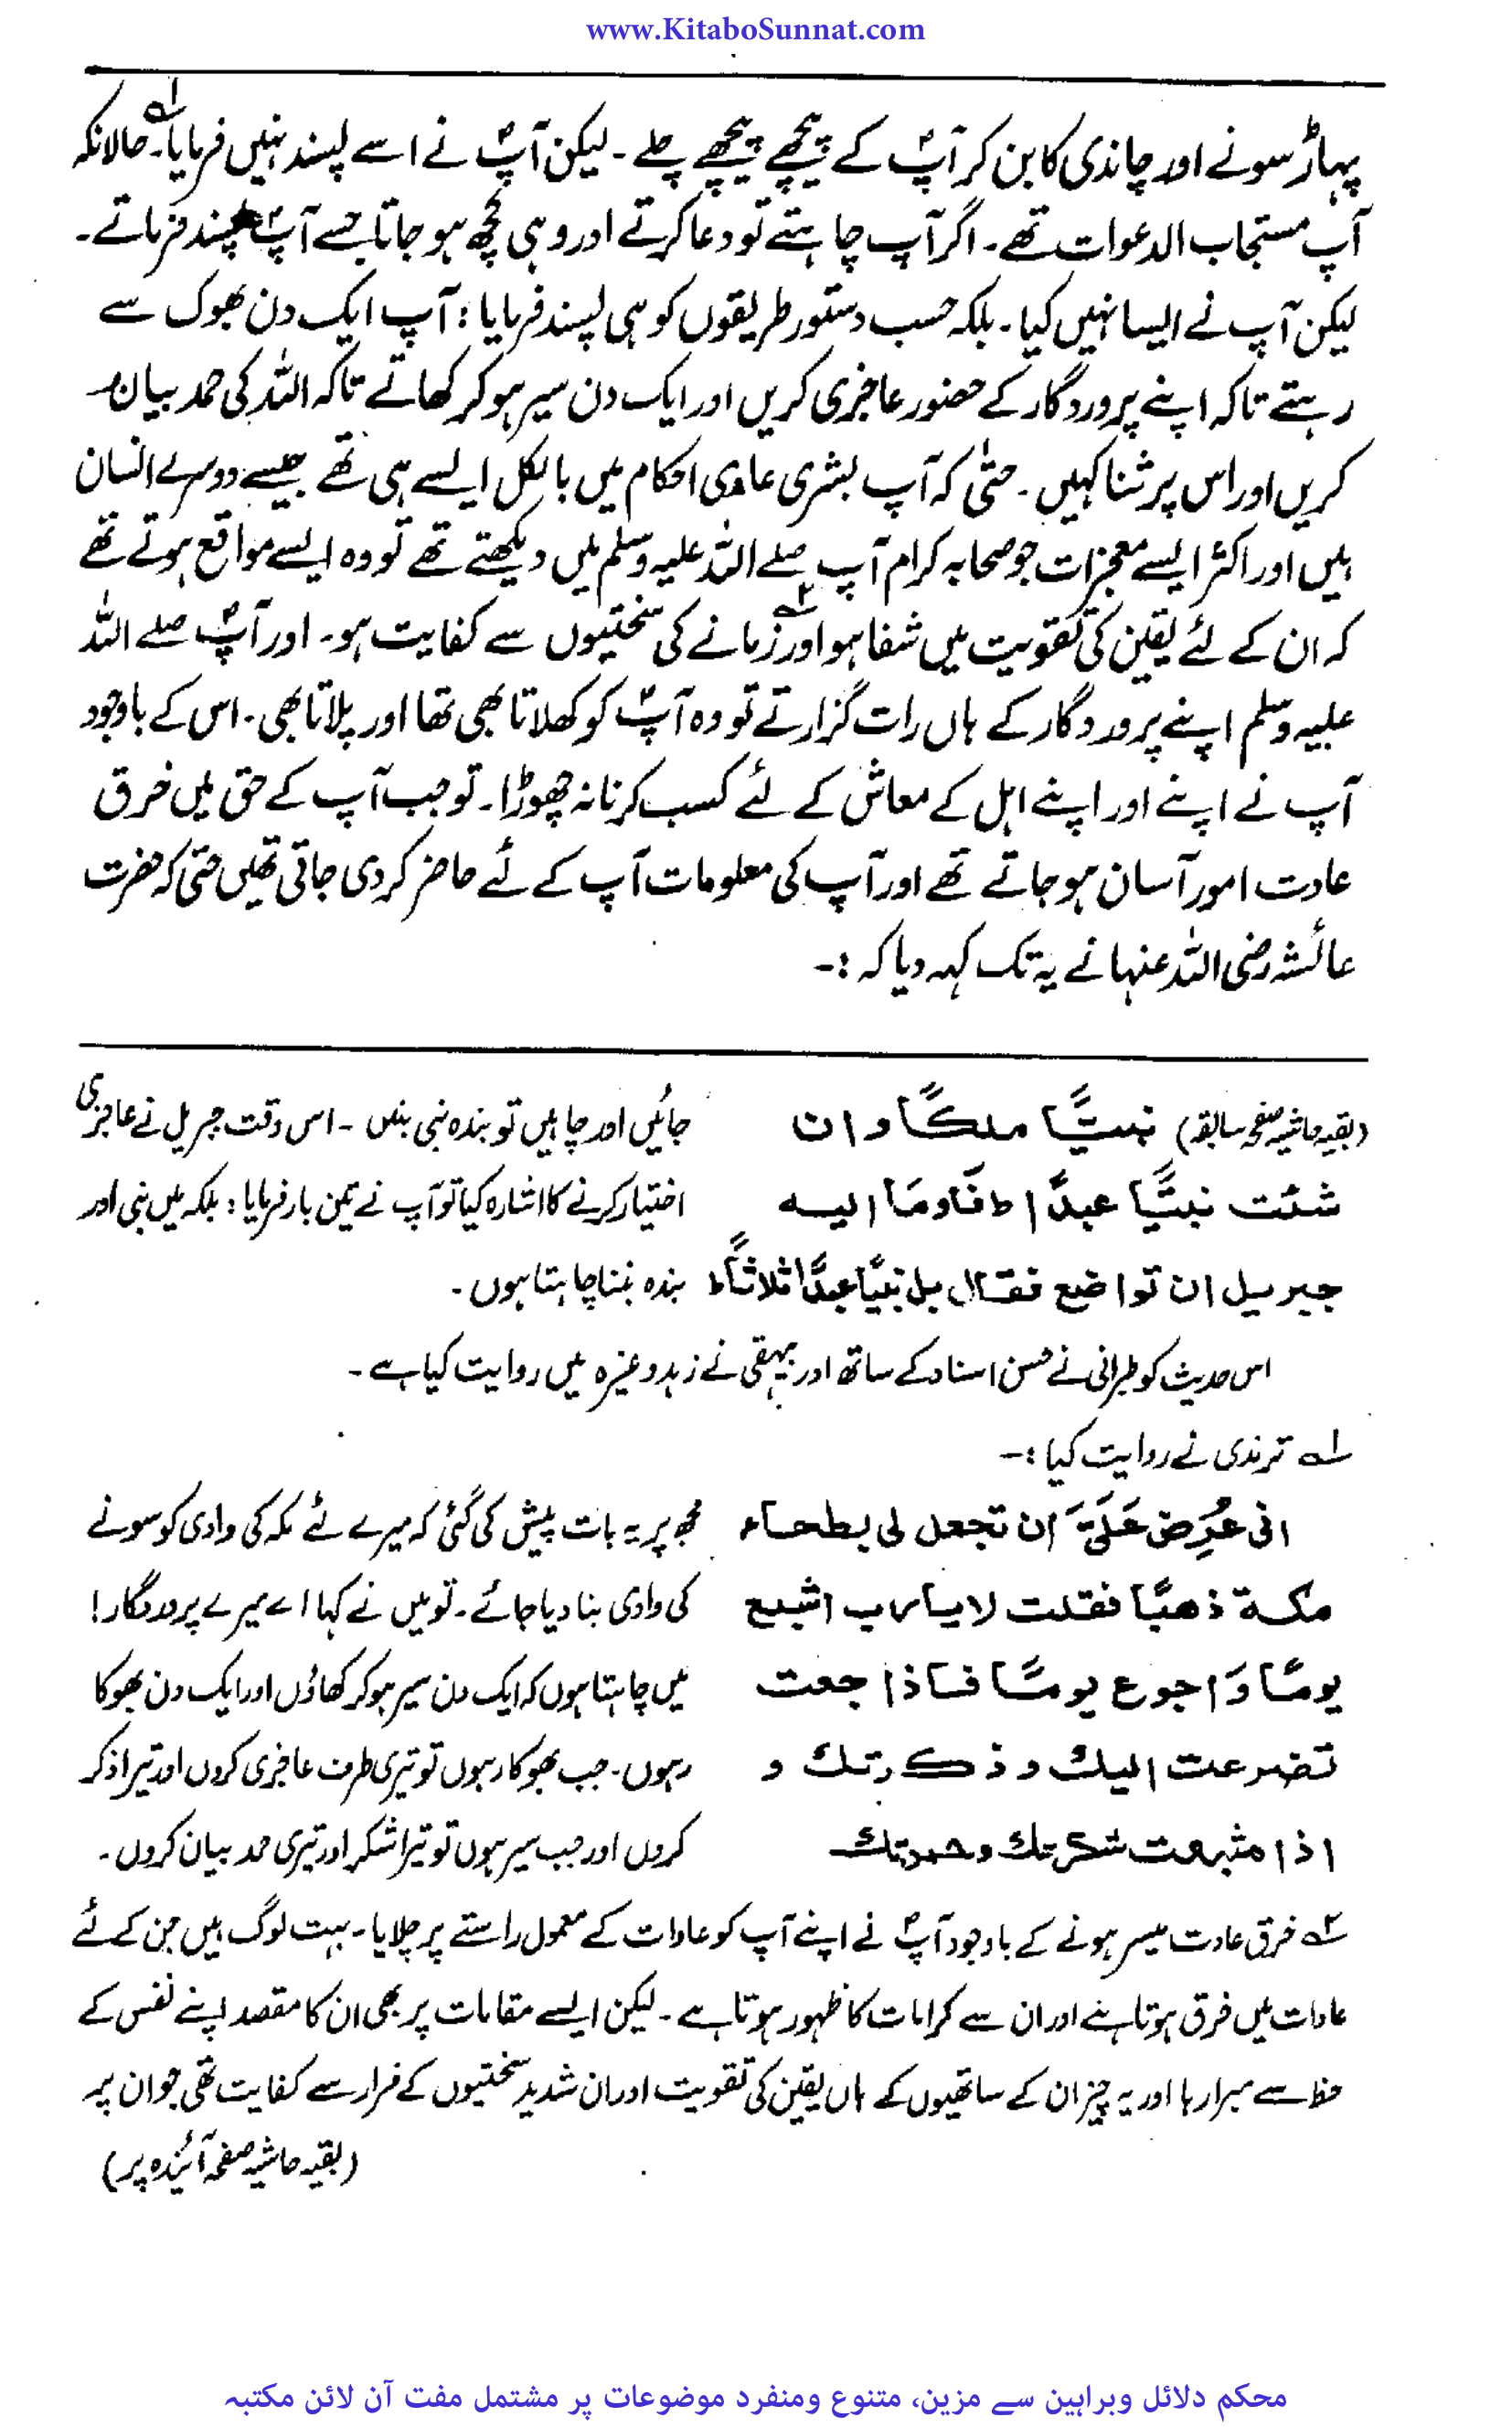 www.KitaboSunnat.com
پہاڑ سونے اور چاندی کا بن کر آپؐ کے پیچھے پیچھے چلے ۔ لیکن آپؐ نے اسے پسند نہیں فرمایا۔ ١ے حالانکہ
آپ مستجاب الدعوات تھے۔ اگر آپ چاہتے تو دعا کرتے اور وہی کچھ ہو جاتا جسے آپؐ پسند فرماتے۔
لیکن آپ نے ایسا نہیں کیا ۔ بلکہ حسب دستور طریقوں کو ہی پسند فرمایا : آپ ایک دن بھوک سے
رہتے تاکہ اپنے پروردگار کے حضور عاجزی کریں اور ایک دن سیر ہو کر کھاتے تاکہ اللہ کی حمد بیان
کریں اور اس پر ثنا کہیں ۔ حتیٰ کہ آپ بشری عادی احکام میں بالکل ایسے ہی تھے جیسے دوسرے انسان
ہیں اور اکثر ایسے معجزات جو صحابہ کرام آپ صلے اللہ علیہ وسلم میں دیکھتے تھے تو وہ ایسے مواقع ہوتے تھے
کہ ان کے لئے یقین کی تقویت میں شفا ہو اور ٢ے زمانے کی سختیوں سے کفایت ہو۔ اور آپؐ صلے اللہ
علیہ وسلم اپنے پروردگار کے ہاں رات گزارتے تو وہ آپؐ کو کھلاتا بھی تھا اور پلاتا بھی ۔ اس کے باوجود
آپ نے اپنے اور اپنے اہل کے معاش کے لئے کسب کرنا نہ چھوڑا۔ تو جب آپ کے حق میں خرق
عادت امور آسان ہو جاتے تھے اور آپ کی معلومات آپ کے لئے حاضر کر دی جاتی تھیں حتیٰ کہ حضرت
عائشہ رضی اللہ عنہا نے یہ تک کہہ دیا کہ :۔
(بقیہ حاشیہ صفحہ سابقہ) نبیًّا ملکًا و ان جائیں اور چاہیں تو بندہ نبی بنیں ۔ اس وقت جبریل نے عاجزی
شئت نبیًّا عبدًا ط فَاَومَا الیه اختیار کرنے کا اشارہ کیا تو آپ نے تین بار فرمایا : بلکہ میں نبی اور
جبریل ان تواضع فقال بل نبیًّا عبدًا ثلاثًا ط بندہ بننا چاہتا ہوں ۔
اس حدیث کو طبرانی نے حسن اسناد کے ساتھ اور بیہقی نے زہد وغیرہ میں روایت کیا ہے ۔
١ے ترمذی نے روایت کیا :۔
انی عُرِضَ عَلَیَّ اَن تجعل لی بطحاء مجھ پر یہ بات پیش کی گئی کہ میرے لئے مکہ کی وادی کو سونے
مکة ذھبًا فقلت لا یا رب اشبع کی وادی بنا دیا جائے ۔ تو میں نے کہا اے میرے پروردگار!
یومًا وَ اجوع یومًا فاذا جعت میں چاہتا ہوں کہ ایک دن سیر ہو کر کھاؤں اور ایک دن بھوکا
تضرعت الیك و ذکرتك و رہوں ۔ جب بھوکا رہوں تو تیری طرف عاجزی کروں اور تیرا ذکر
اذا شبعت شکرتك و حمدتك کروں اور جب سیر ہوں تو تیرا شکر اور تیری حمد بیان کروں ۔
٢ے خرق عادت میسر ہونے کے باوجود آپؐ نے اپنے آپ کو عادات کے معمول راستے پر چلایا ۔ بہت لوگ ہیں جن کے لئے
عادات میں فرق ہوتا ہے اور ان سے کرامات کا ظہور ہوتا ہے ۔ لیکن ایسے مقامات پر بھی ان کا مقصد اپنے نفس کے
حظ سے مبرا رہا اور یہ چیز ان کے ساتھیوں کے ہاں یقین کی تقویت اور ان شدید سختیوں کے فرار سے کفایت تھی جو ان پر
(بقیہ حاشیہ صفحہ آئندہ پر)
محکم دلائل وبراہین سے مزین، متنوع ومنفرد موضوعات پر مشتمل مفت آن لائن مکتبہ